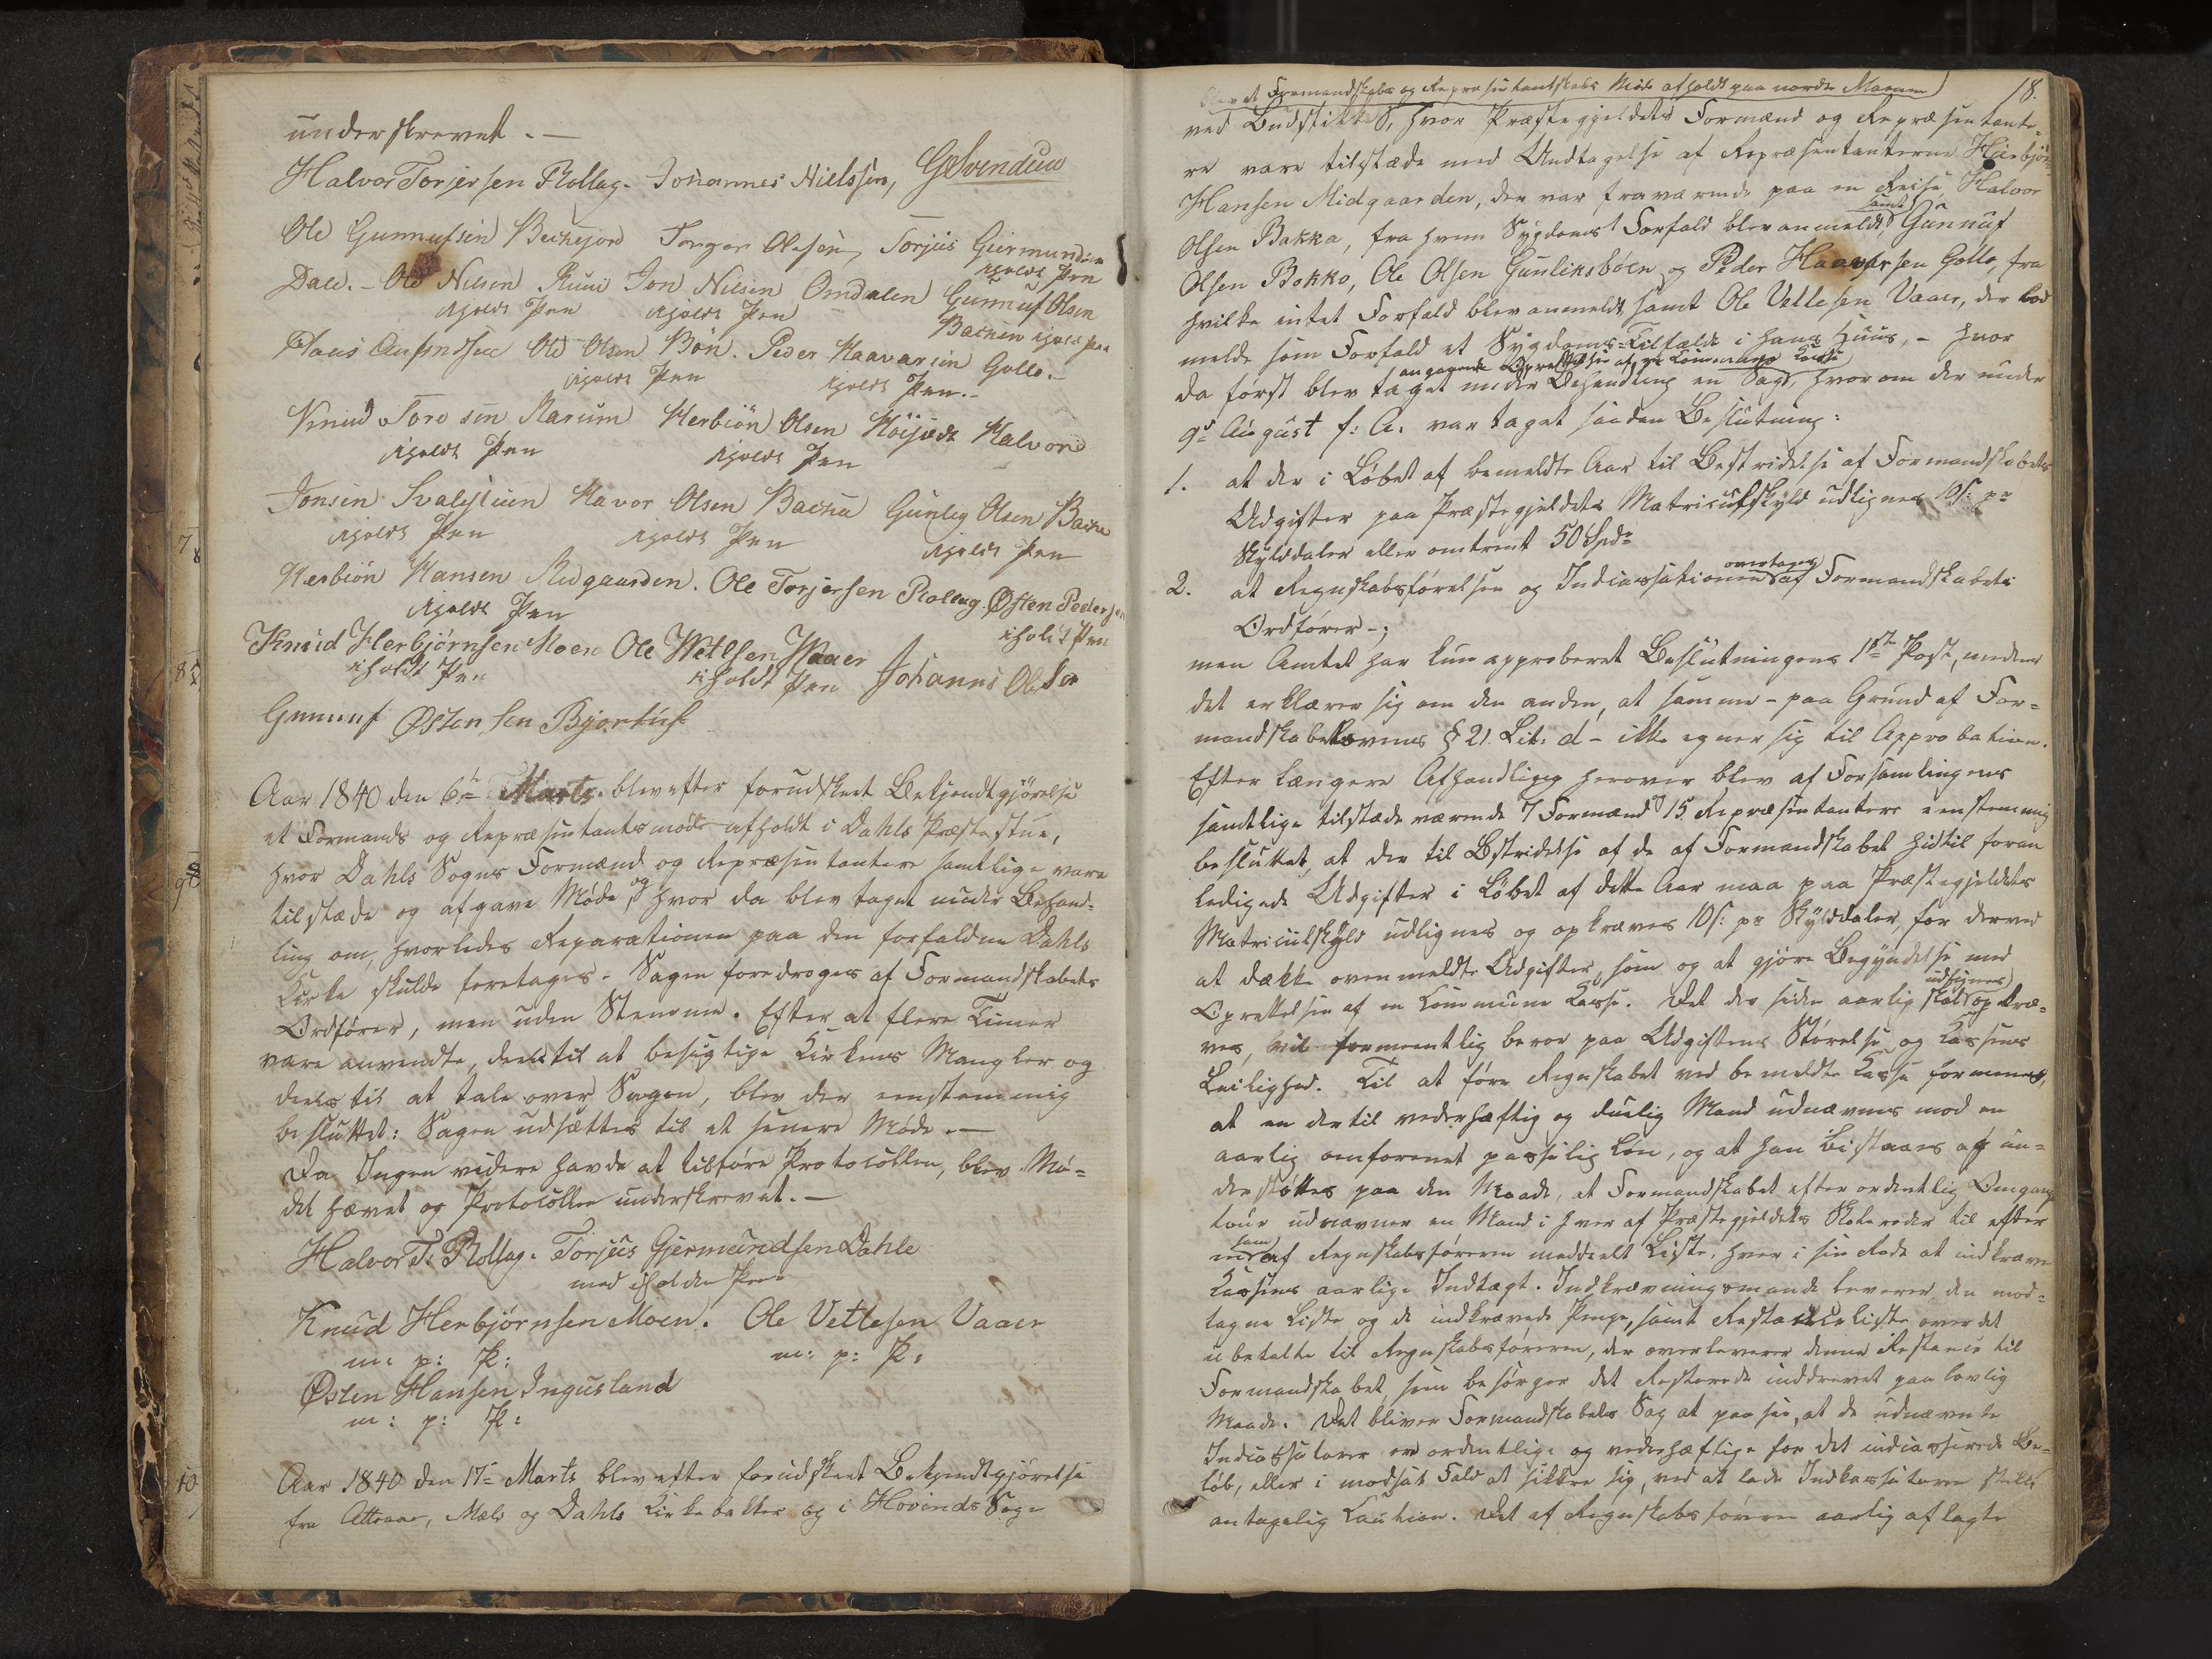 underskrevet. —
Halvor Torjersen Rollag. Johannes Nielssen, GSvendsen
Ole Gunnufsen Torger Olesen, Torjus Giermundsen
Iholt Pen
Dale. — Ole Nilsen Jon Nilsen Omdalen Gunnuf Olsen
Iholdt Pen Iholdt Pen Bachen Iholdt Pen
Ole Olsen Bøn. Peder Haavarsen Gollo. —
Iholdt Pen Iholdt Pen. —
Knud Harum Herbiön Olsen Halvord
Iholdt Pen Iholdt Pen
Jonsen Havor Olsen Backa Gunleg Olsen
Iholdt Pen Iholdt Pen Iholdt Pen
Herbiön Hansen Midgaarden. Ole Torjersen Rollag. Østen Pedersen
Iholdt Pen iholdt Pen
Knud Herbjørnsen Moen Ole Wetlesen Waaer
iholdt Pen iholdt Pen Johannes Olsen
Gunnuf Østensen
Aar 1840 den 6te Marts blev efter forudskeet Bekjendtgjörelse
et Formands og Repræsentantsmöde afholdt i Dahls Præstestue,
hvor Dahls Sogns Formænd og Repræsentantere samtlige vare
tilstæde og afgave Møde, og hvor da blev taget under Behand-
ling om, hvorledes Reparationen paa den forfaldne Dahls
Kirke skulde foretages. Sagen foredroges af Formandskabets
Ordfører, men uden Stemme. Efter at flere Timer
vare anvendte, deels til at besigtige Kirkens Mangler og
deels til at tale over Sagen, blev der eenstemmig
besluttet: Sagen udsættes til et senere Møde. —
Da Ingen videre havde at tilføre Protocollen, blev Mö-
det hævet og Protocollen underskrevet. —
Halvor T. Rollag. Torjus Gjermundsen Dahle
med iholden Pen
Knud Herbjørnsen Moen. Ole Vetlesen Vaaer
m: p: P: m: p: P:
Østen Hansen Ingusland
m: p: P:
10
Aar 1840 den 17de Marts blev efter forudskeet Bekjendtgjörelse
fra Attraae, Mæls og Dahls Kirkebakker og i Hovinds Sogn
blev et Formandskabs og Repræsentantskabs Möde afholdt paa nordre Maarum 18.
ved Budstikke, hvor Præstegjeldets Formænd og Repræsentante-
re vare tilstæde med Undtagelse af Repræsentanterne Herbjörn
Hansen Midgaarden, der var fraværende paa en Reise, Halvor
Olsen Bakka, fra hvem Sygdoms Forfald blev anmeldt, samt Gunnuf
Olsen Bakko, Ole Olsen Gunliksbøen og Peder Haavarsen Gollo, fra
hvilke intet Forfald blev anmeldt, samt Ole Vetlesen Vaaer, der lod
melde som Forfald et Sygdoms-Tilfælde i hans Huus, — hvor
angaaende Oprettelsen af en Commune Kasse
da først blev taget under Behandling en Sag, hvorom der under
9de August f: A. var taget saadan Beslutning:
1. at der i Löbet af bemeldte Aar til Bestridelse af Formandskabets
Udgifter paa Præstegjeldets Matriculskyld udlignes 10 s: pr
Skylddaler eller omtrent 50 Spdr
2. at Regnskabsförelsen og Indcassationen overtages af Formandskabets
Ordfører —;
men Amtet har kun approberet Beslutningens 1ste Post, medens
det erklærer sig om den anden, at samme — paa Grund af For-
mandskabslovens § 21. Lit: d — ikke egner sig til Approbation.
Efter længere Afhandling herover blev af Forsamlingens
samtlige tilstædeværende 7 Formænd og 15 Repræsentantere eenstemmig
besluttet, at der til Bestridelse af de af Formandskabet hidtil foran
ledigede Udgifter i Löbet af dette Aar maa paa Præstegjeldets
Matriculskyld udlignes og opkræves 10 s: pr Skylddaler, for derved
at dække ovenmeldte Udgifter, som og at gjöre Begyndelse med
Oprettelsen af en Commune Kasse. Det der siden aarlig skal udlignes og opkræ-
ves, vil formeentlig beroe paa Udgiftens Störrelse og Kassens
Leilighed. Til at före Regnskabet ved bemeldte Kasse formenes,
at en dertil vederhæftig og duelig Mand udnævnes mod en
aarlig omforenet passelig Lön, og at han bistaaes og un-
derstöttes paa den Maade, at Formandskabet efter ordentlig Omgangs
tour udnævner en Mand i hver af Præstegjeldets Skoleroder til efter
som af Regnskabsföreren meddeelt Liste, hver i sin Rode at indkræve
Kassens aarlige Indtægt. Indkrævningsmændene leverer den mod-
tagne Liste og de indkrævede Penge, samt Restanceliste over det
ubetalte til Regnskabsföreren, der overleverer denne Restance til
Formandskabet, som besörger det Resterende inddrevet paa lovlig
Maade. Det bliver Formandskabets Sag at paasee, at de udnævnte
Indcassatorer ere ordentlige og vederhæftige for det indcasserede Be-
löb, eller i modsat Fald at sikkre sig, ved at lade Indkassatoren stille
antagelig Caution. Det af Regnskabsföreren aarlig aflagte